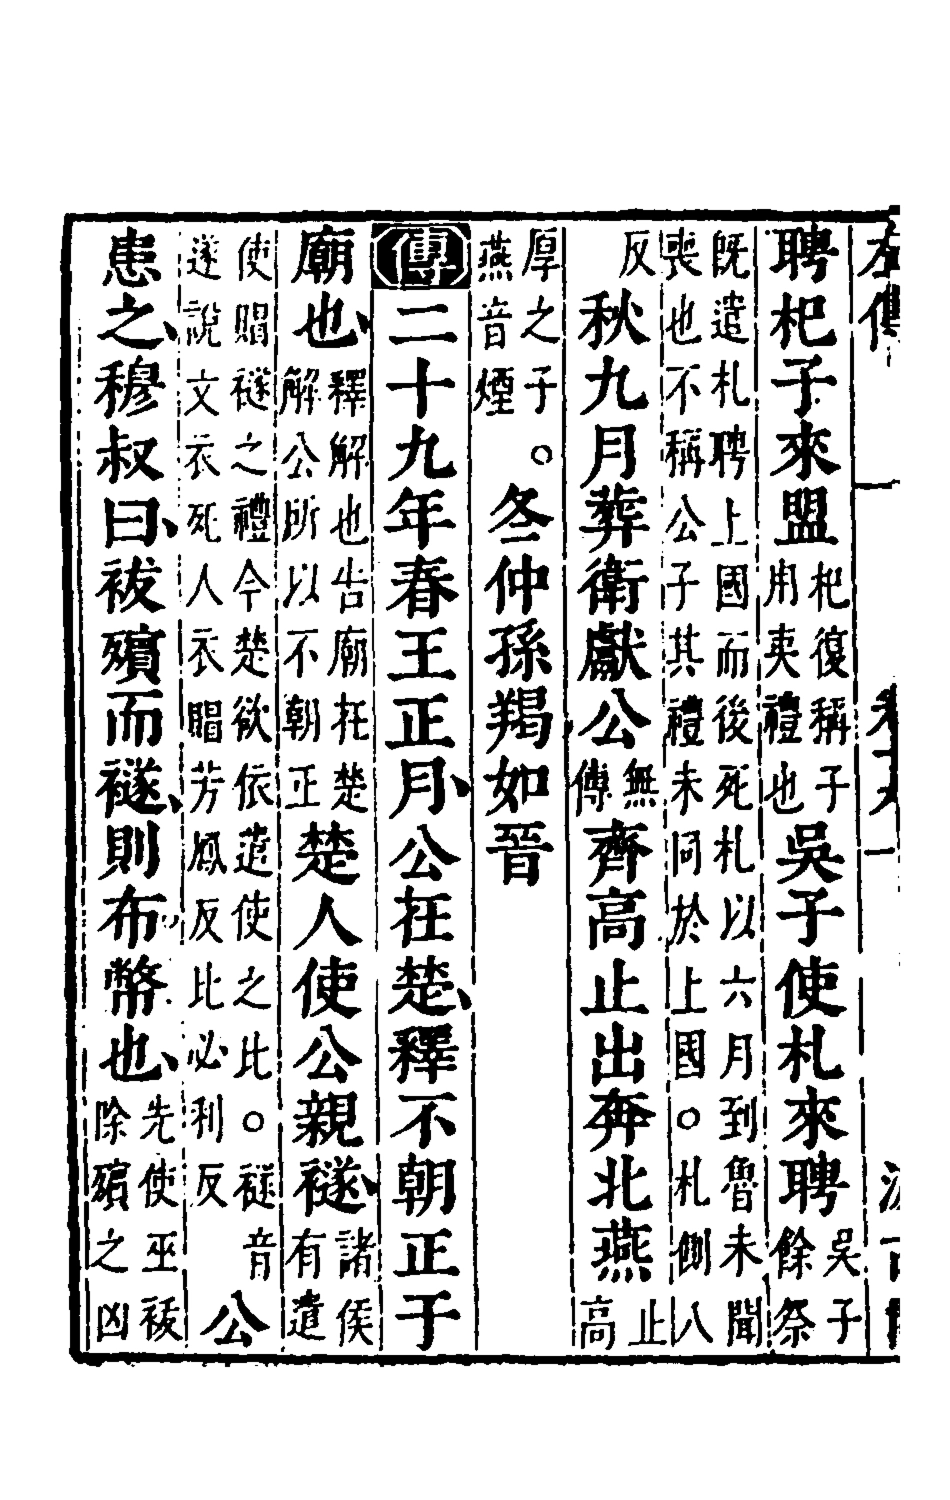 左傳 卷十九 一
聘杞子來盟杞復稱子用夷禮也吳子使札來聘吳子餘祭
既遣札聘上國而後死札以六月到魯未聞喪也不稱公子其禮未同於上國○札側八
反秋九月葬衛獻公無傳齊高止出奔北燕止高
厚之子○燕音煙冬仲孫羯如晉
傳二十九年春王正月公在楚釋不朝正于
廟也釋解也告廟在楚解公所以不朝正楚人使公親襚諸侯有遣
使賵襚之禮今楚欲依遣使之比○襚音遂說文衣死人衣賵芳鳳反比必利反公
患之穆叔曰祓殯而襚則布幣也先使巫祓除殯之凶